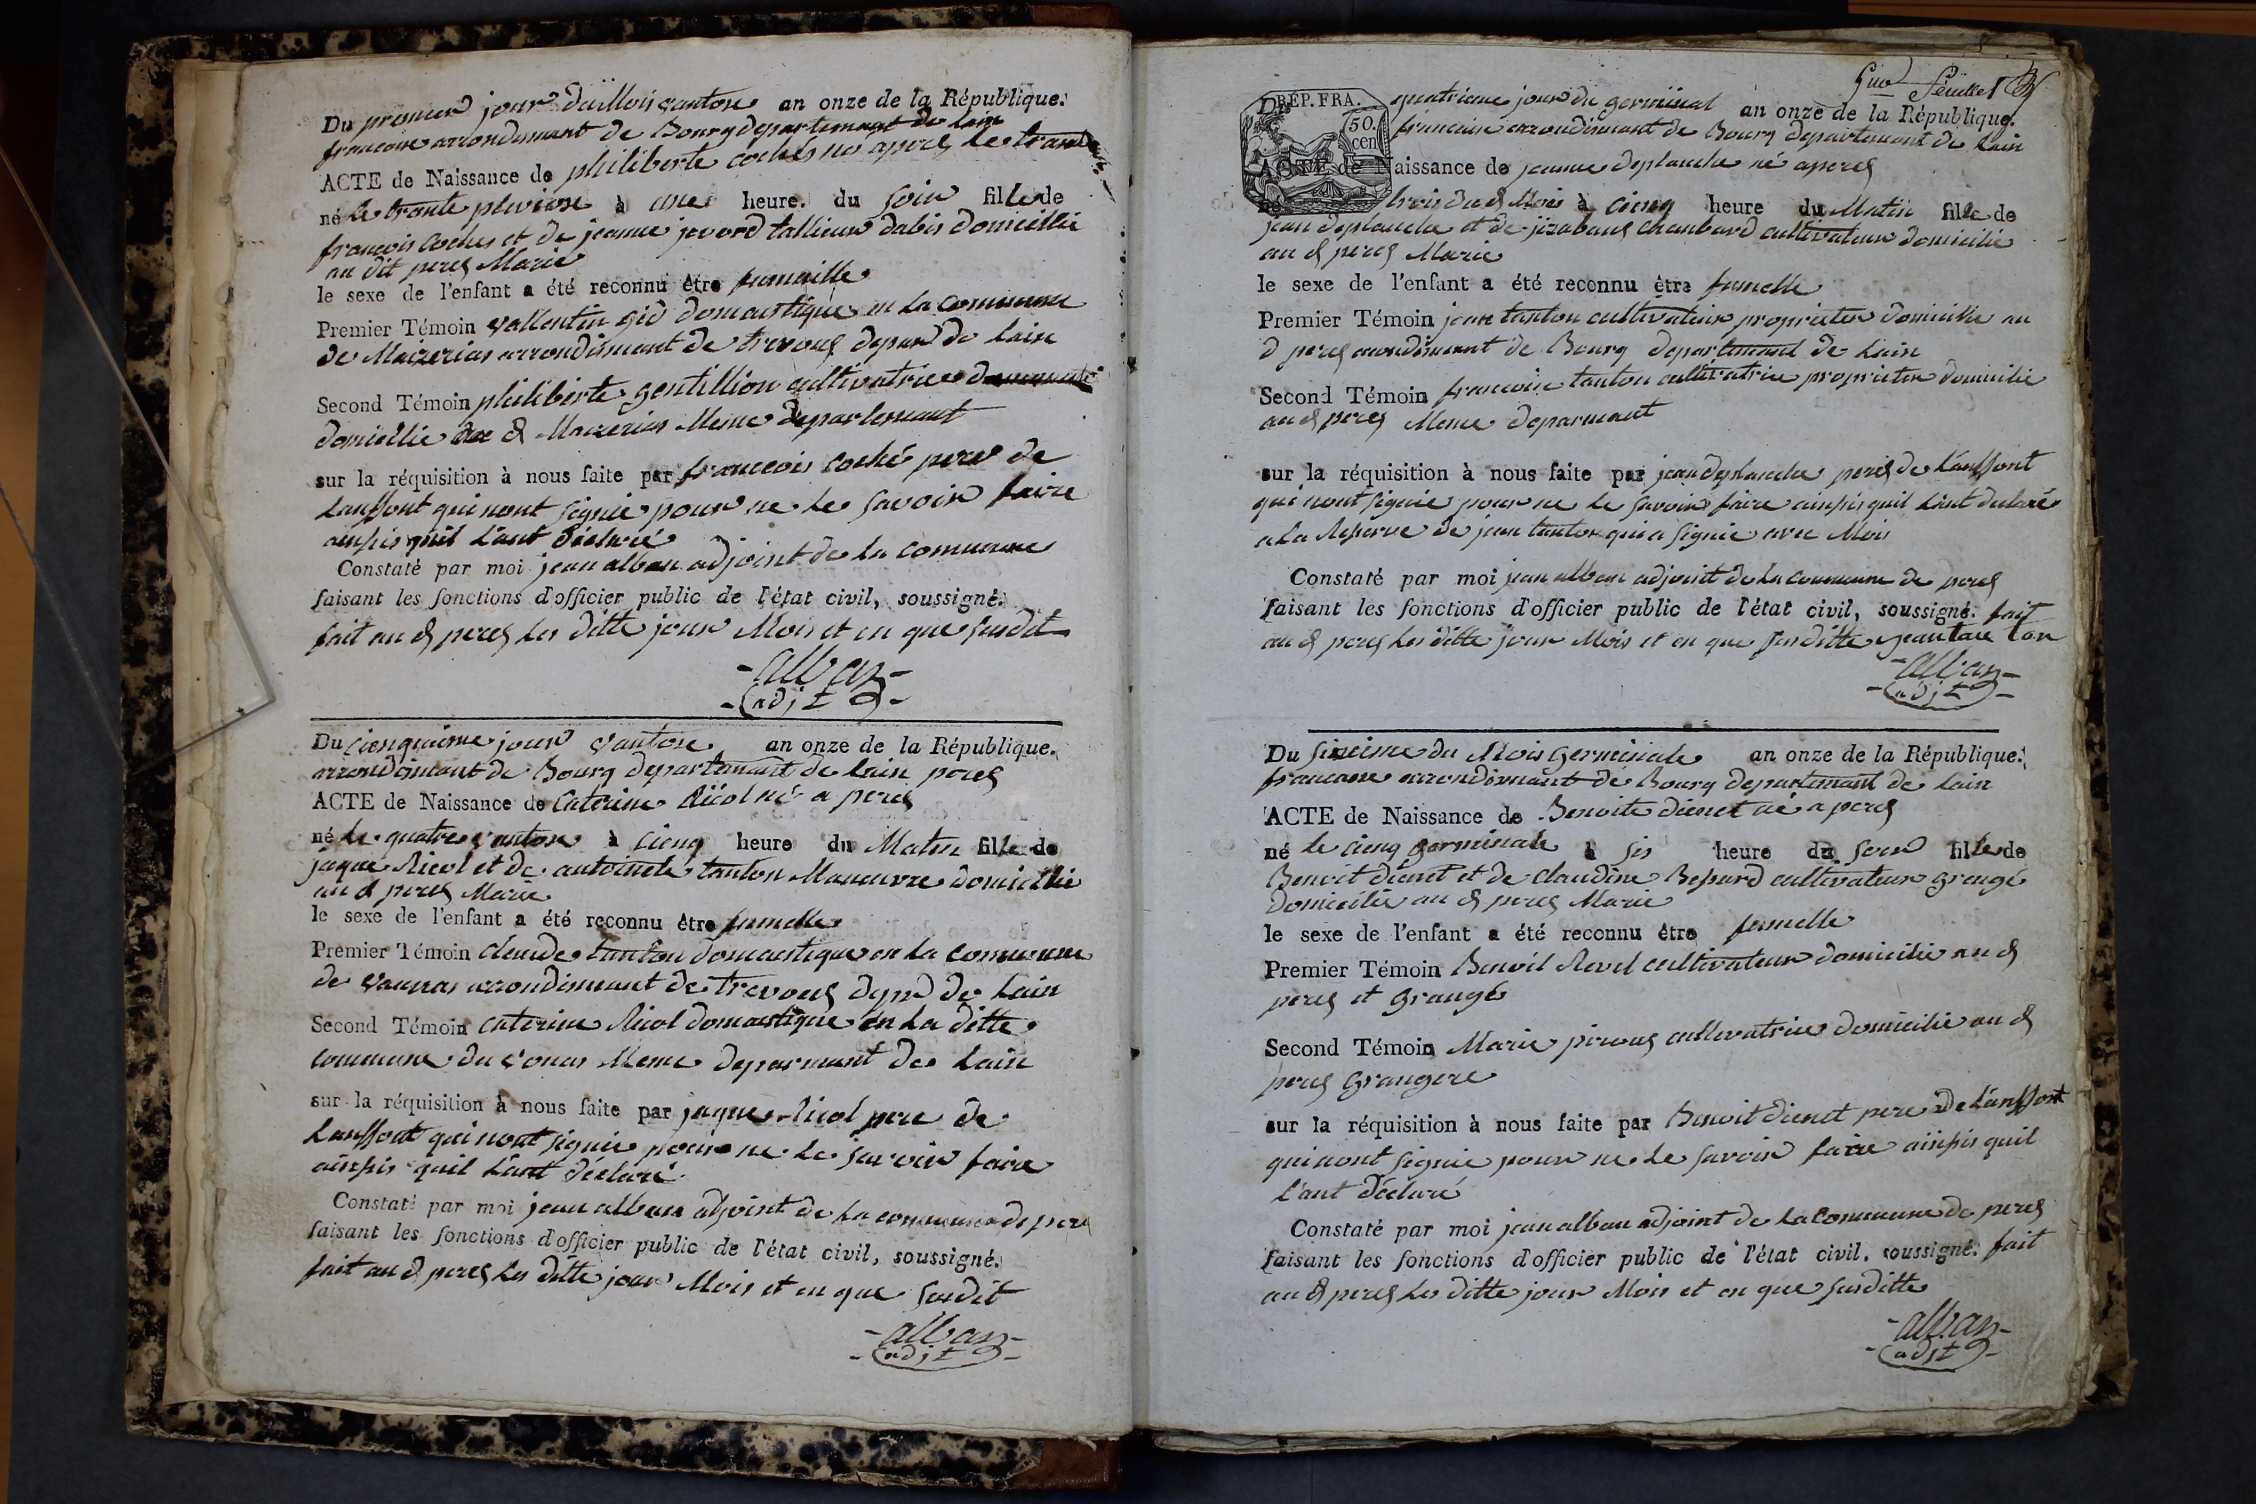 Du premier jour du Mois vantose an onze de la République.
francoise arrondismant de Bourg departemant de Lain
ACTE de Naissance de philiberte coches né aperes le trante
né le trante pluviose à une heure. du soir fille de
francois Coches et de jeanne jovord tallieur dabis domicillié
au dit peres Marié
le sexe de l'enfant a été reconnu être fumaille
Premier Témoin vallentin gid domastique en la Commune
de Maizerias arrondismant de trevous depard de Lain
Second Témoin philiberte gentillion cultivatrice
domicillie au d Maizerias Meme departemant
sur la réquisition à nous faite par francois coché pere de
Lanffont qui nont signié pour ne le savoir faire
ainssis quil Lant déclaré
Constaté par moi jean alban adjoint de la commune
faisant les fonctions d'officier public de l'état civil, soussigné.
fait au d peres les ditte jour Mois et en que susdit
- alban -
- adjt -
Du cienquième jour vantose an onze de la République.
arrondismant de Bourg departamant de Lain peres
ACTE de Naissance de Caterine Ricol né a peres
né le quatre vantose à cienq heure du Matin fille de
jaque Ricol et de antoinete tanton Maneuvre domicillié
au d peres Marié
le sexe de l'enfant a été reconnu être fumelle
Premier Témoin claude tanton domastique en la commune
de vaunas arrondismant de Trevous depd de Lain
Second Témoin caterine Ricol domastique en La ditte
commune du vonas Meme deparmant de Lain
sur la réquisition à nous faite par jaque Ricol pere de
Lanffont qui nont signié pour ne le savoir faire
ainssis quil Lant déclaré
Constaté par moi jean alban adjoint de La commune de peres
faisant les fonctions d'officier public de l'état civil, soussigné.
fait au d peres les ditte jour Mois et en que susdit
- alban -
- adjt -
5me feuillet
RÉP. FRA.
50.
cen
Du quatrieme jour du germinal an onze de la République.
francaise arrondismant de Bourg departemant de Lain
ACTE de Naissance de jeanne deplanche né aperes
né trois dud Mois à Cienq heure du Matin fille de
jean deplanche et de jizabaus chambard cultivateur domicilié
au d peres Marié
le sexe de l'enfant a été reconnu être fumelle
Premier Témoin jean tanton cultivateur proprieter domicillie au
d peres arrondismant de Bourg departemant de Lain
Second Témoin francoise tanton cultivatrice proprieter domicilié
au d peres Meme deparmant
sur la réquisition à nous faite par jean deplanche peres de Lanffont
qui nont signié pour ne le savoir faire ainssis quil Lant declaré
a La Reserve de jean tanton qui a signié avec Mois
Constaté par moi jean alban adjoint de la commune de peres
faisant les fonctions d'officier public de l'état civil, soussigné. fait
au d peres les ditte jour Mois et en que susditte jean tanton
- alban -
- adjt -
Du sixcime du Mois Germinale an onze de la République.
francaise arrondismant de Bourg departemant de Lain
ACTE de Naissance de Benoite dienet né a peres
né le cienq Germinale à sis heure du soir fille de
Benoit dienet et de claudine Bessard cultivateur grangé
domicilié au d peres Marié
le sexe de l'enfant a été reconnu être fumelle
Premier Témoin Benoit Revel cultivateur domicilié au d
peres et Grangé
Second Témoin Marie pirous cultivatrice domicilié au d
peres Grangere
sur la réquisition à nous faite par Benoit dienet pere de Lanffont
qui nont signié pour ne le savoir faire ainssis quil
L'ant déclaré
Constaté par moi jean alban adjoint de la Commune de peres
faisant les fonctions d'officier public de l'état civil, soussigné. fait
au d peres les ditte jour Mois et en que susditte
- alban -
- adjt -